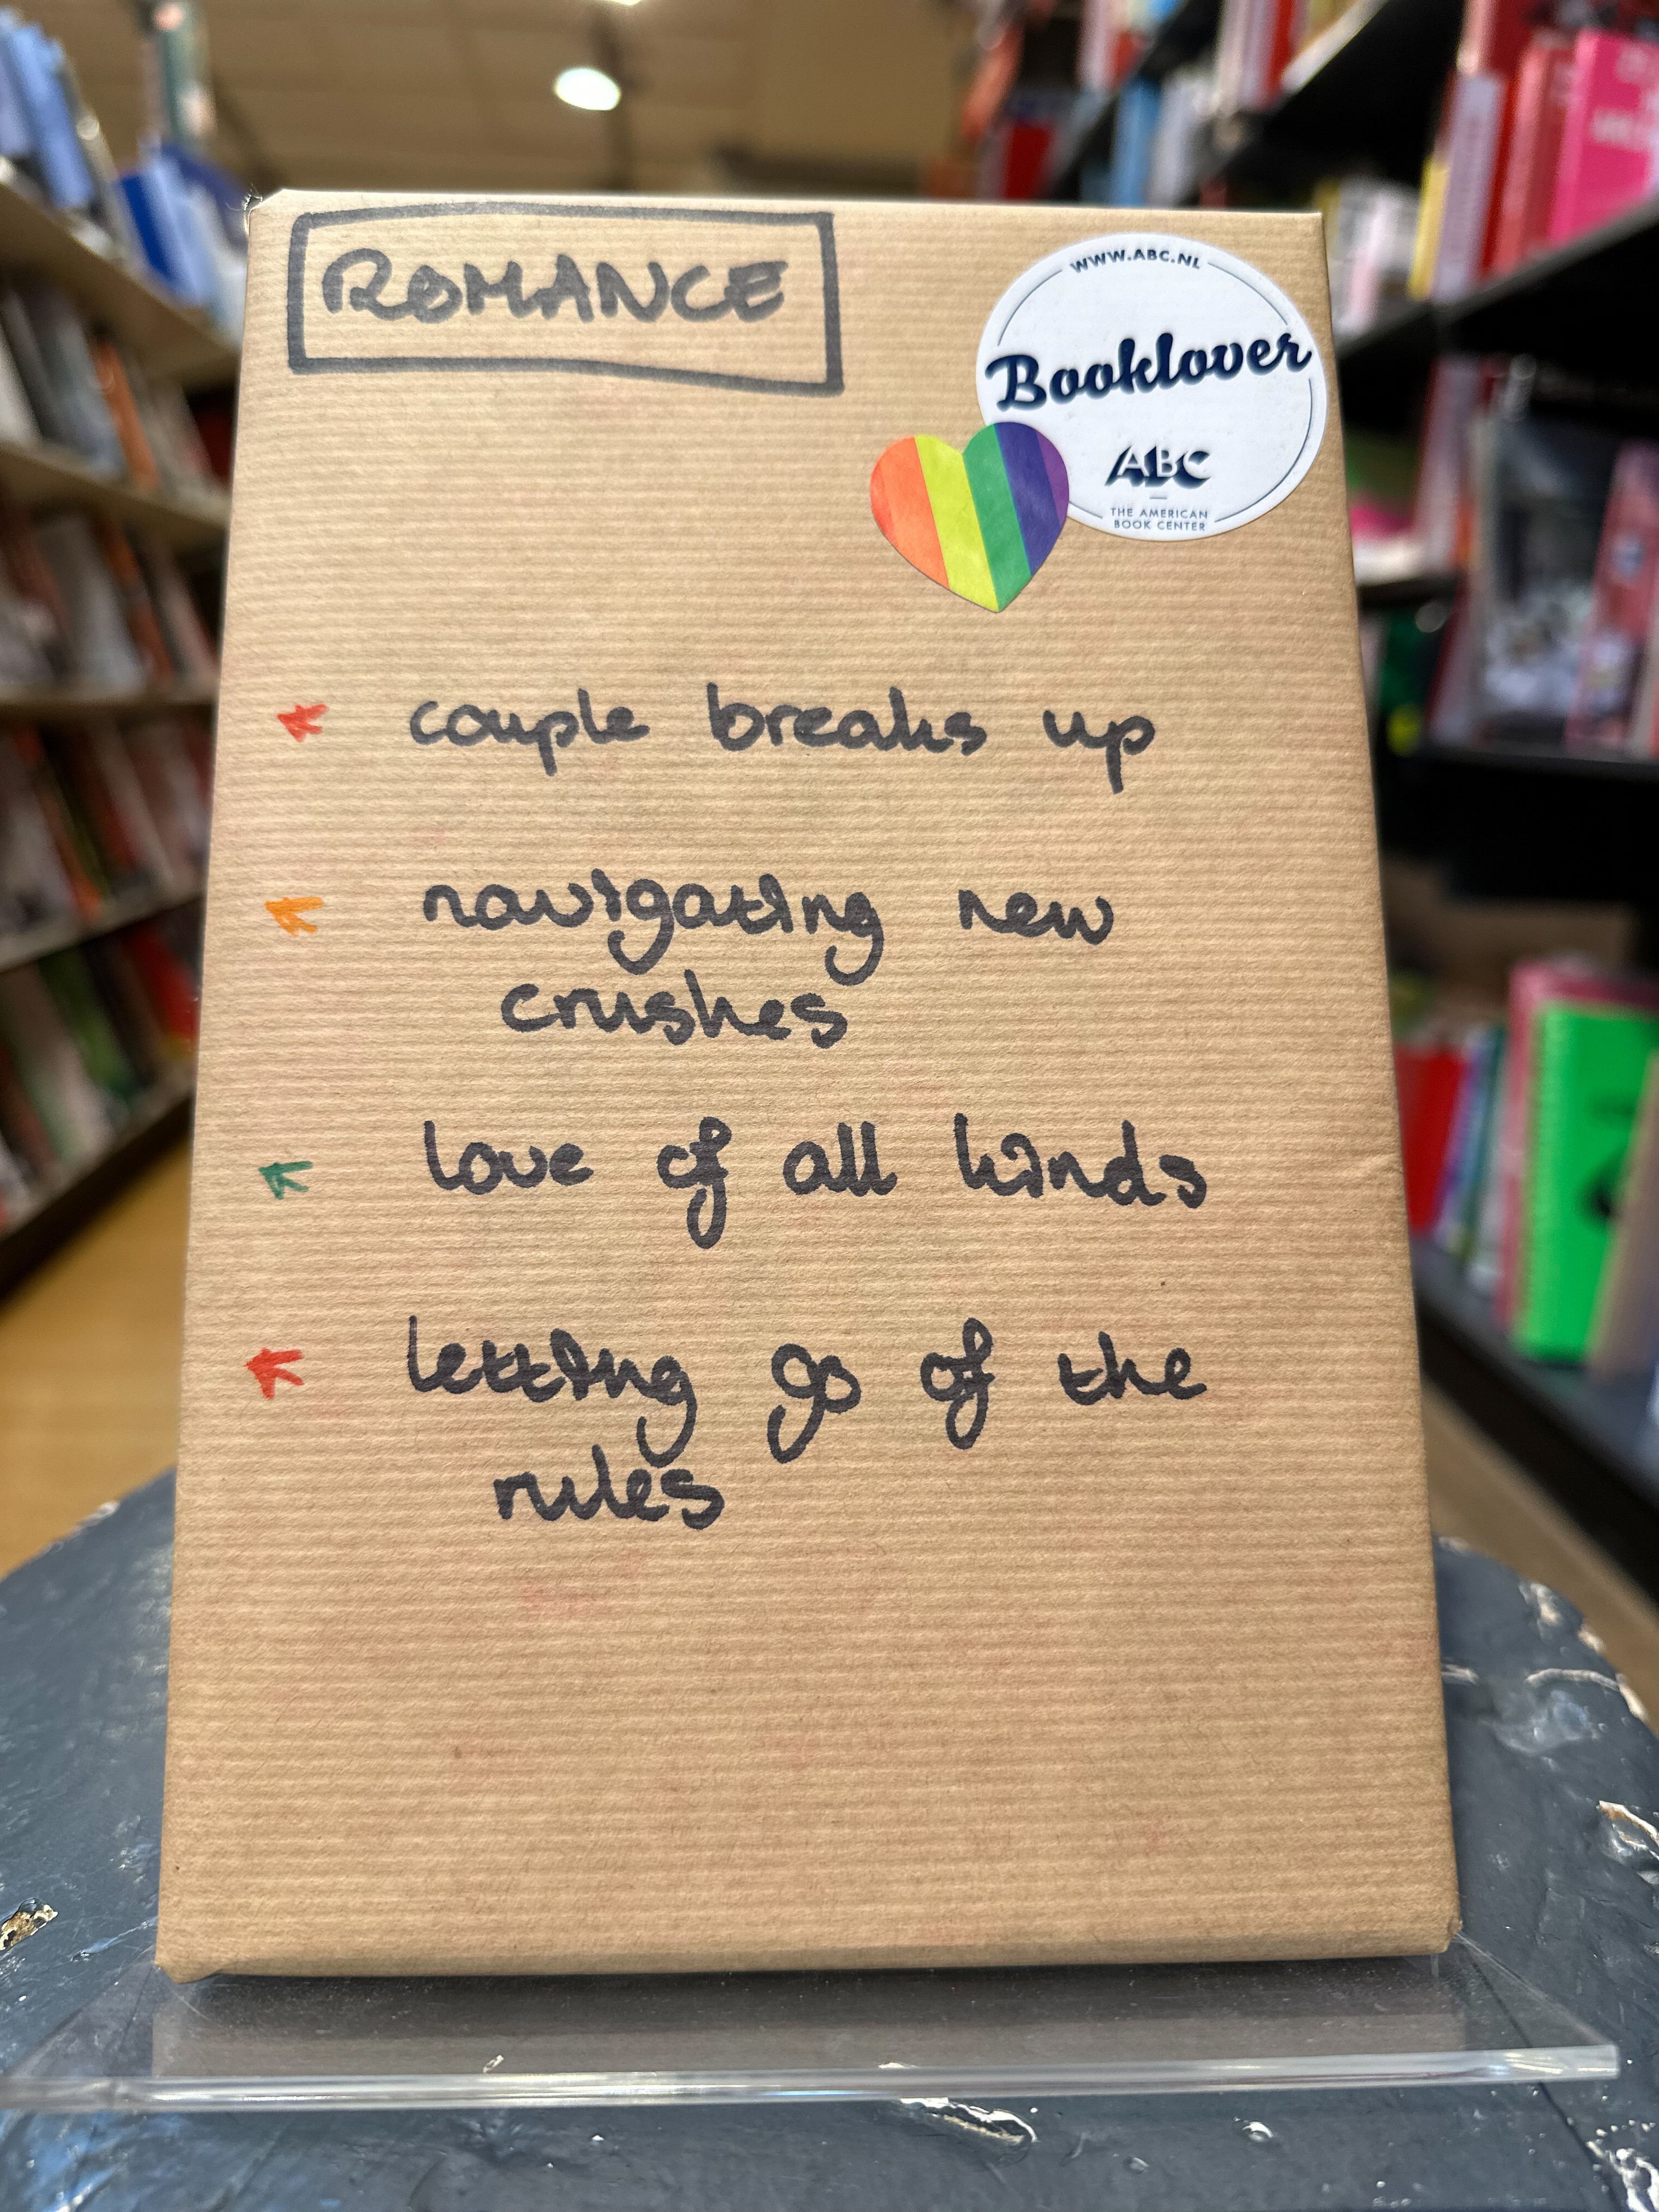 ROMANCE
WWW.ABC.NL
Booklover
ABC
THE AMERICAN
BOOK CENTER
couple breaks up
navigating new
crushes
love of all kinds
letting go of the
rules